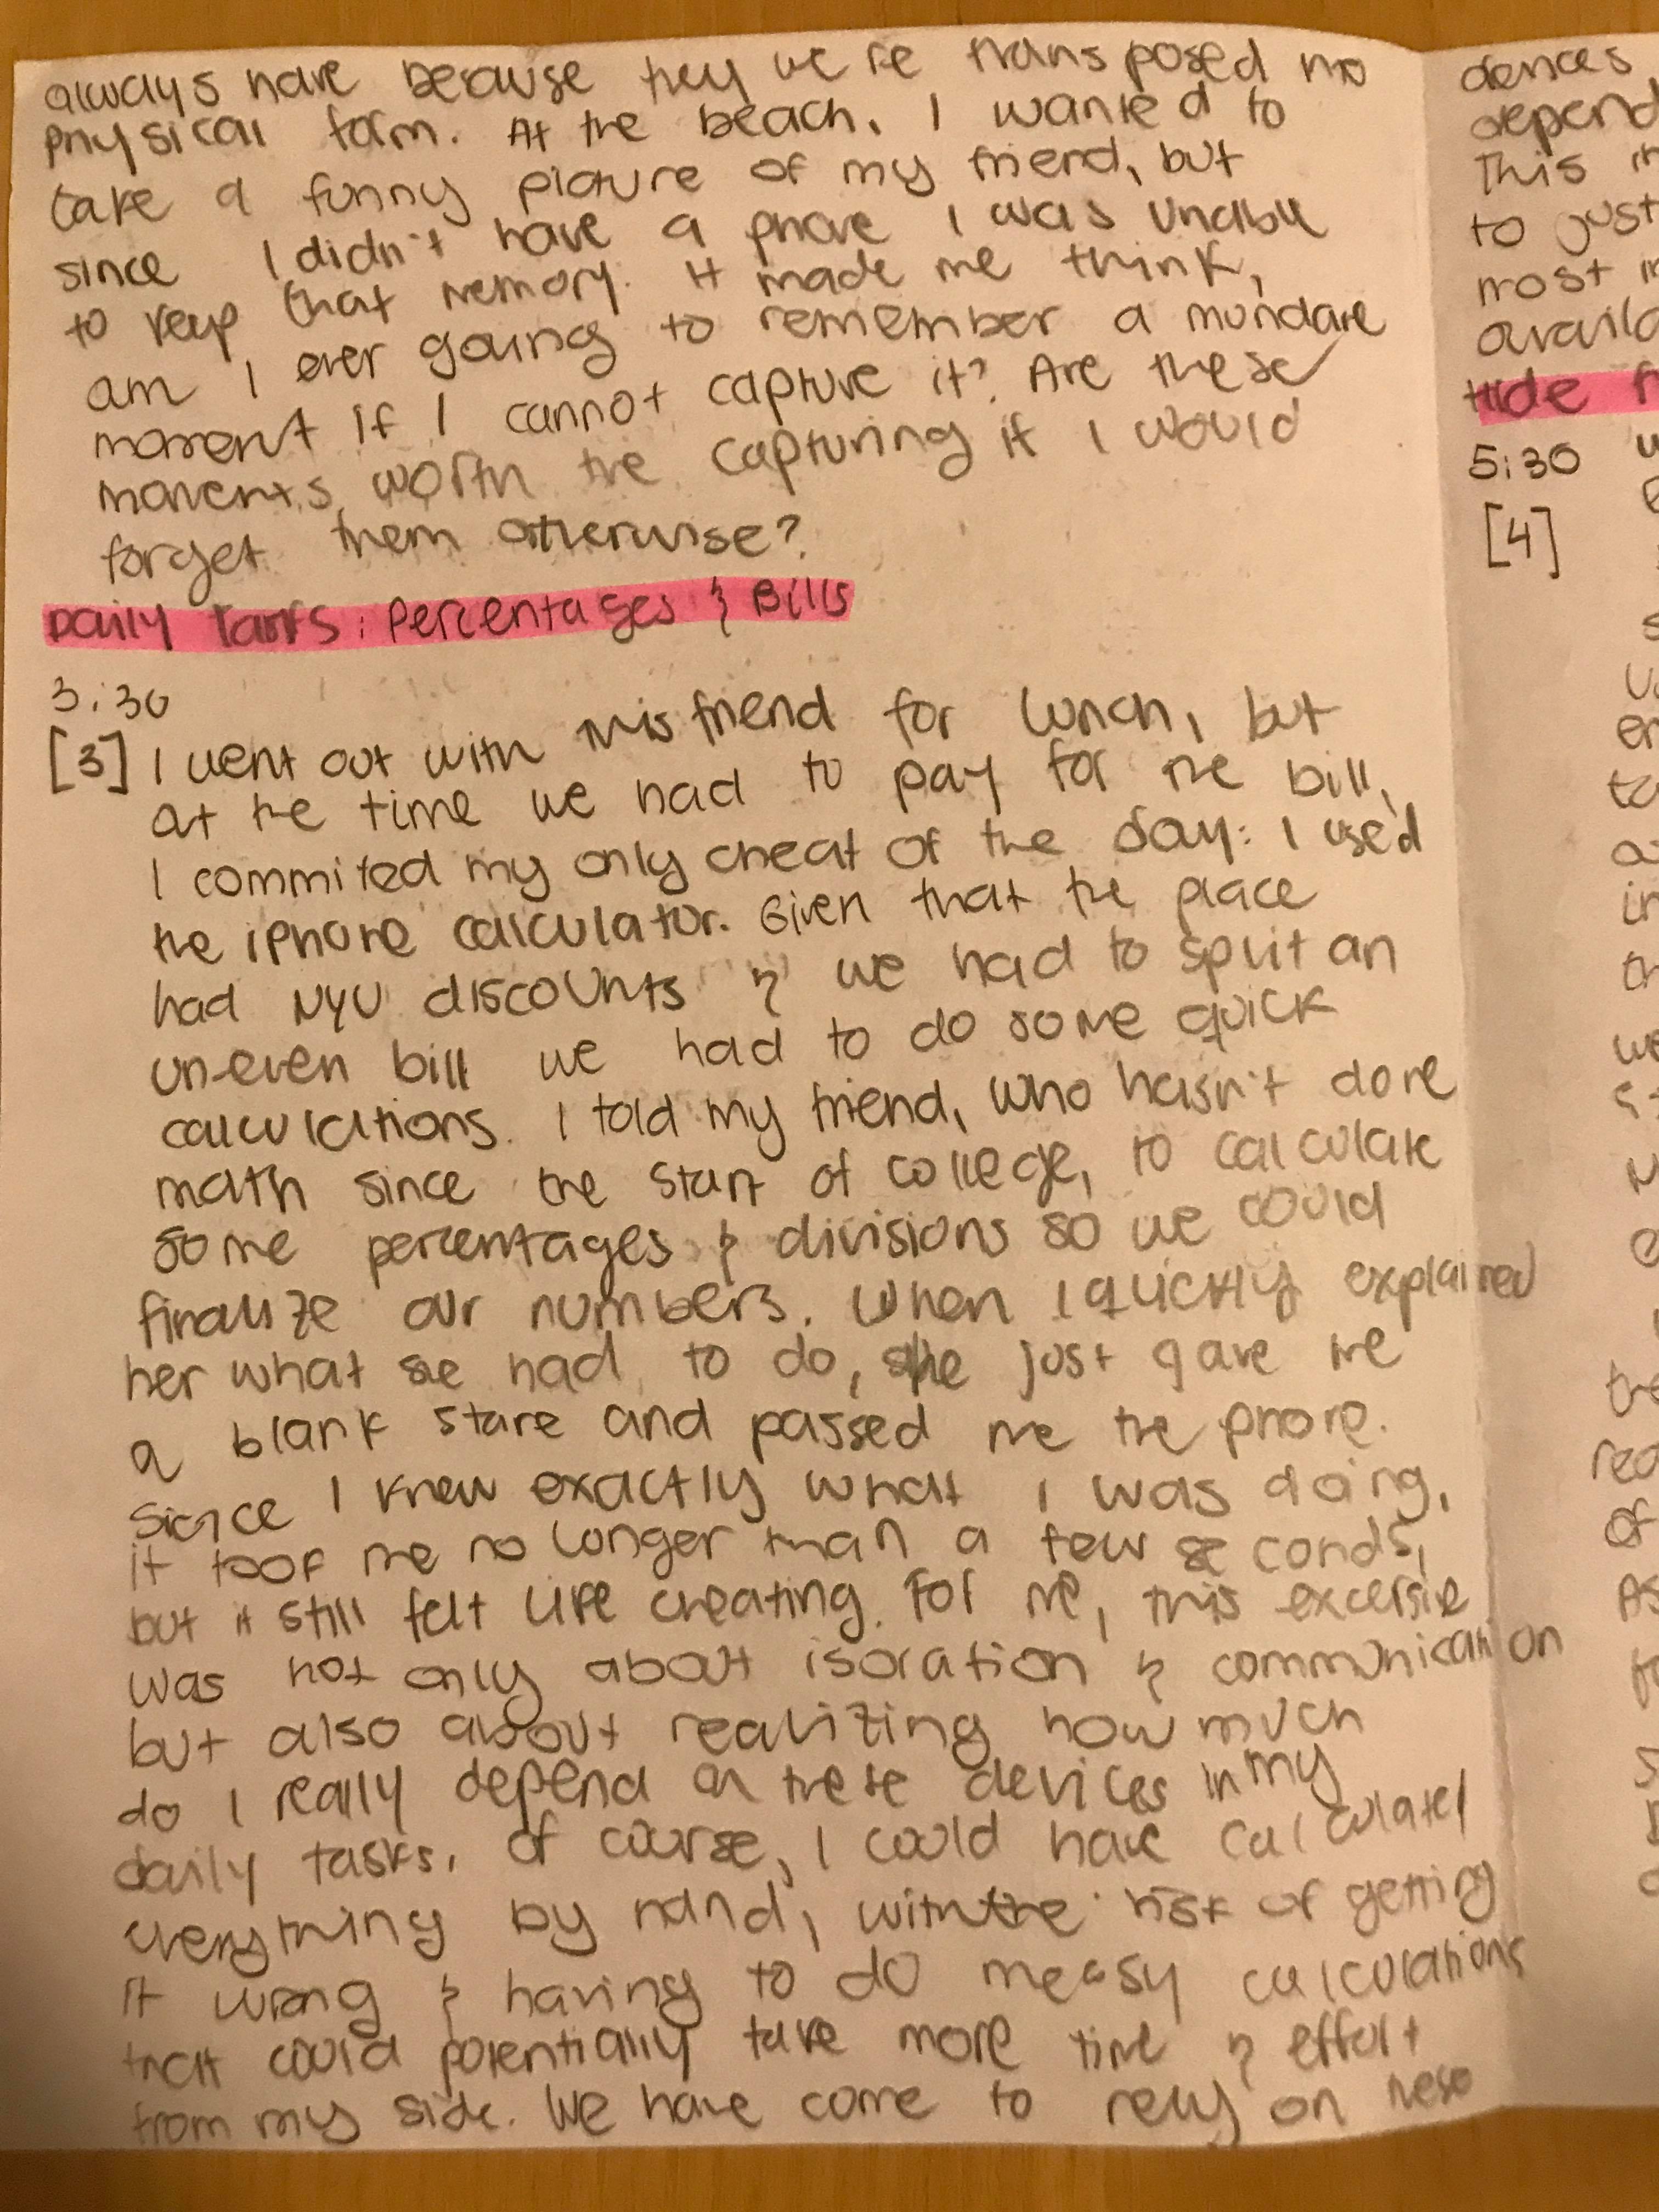 always have because they were transposed into
physical form. At the beach, I wanted to
take a funny picture of my friend, but
since I didn't have a phone I was unable
to keep that memory. It made me think,
am I ever going to remember a mundane
moment if I cannot capture it? Are these
moments worth the capturing if I would
forget them otherwise?
Daily Tasks: Percentages & Bills
3:30
[3] I went out with this friend for lunch, but
at the time we had to pay for the bill,
I commited my only cheat of the day: I used
the iphone calculator. Given that the place
had NYU discounts & we had to split an
uneven bill we had to do some quick
calculations. I told my friend, who hasn't done
math since the start of college, to calculate
some percentages & divisions so we could
finalize our numbers. When I quickly explained
her what se had to do, she just gave me
a blank stare and passed me the phone.
Since I knew exactly what I was doing,
it took me no longer than a few seconds,
but it still felt like cheating. For me, this excersie
was not only about isolation & communication
but also about realizing how much
do I really depend on these devices in my
daily tasks. Of course, I could have calculated
everything by hand, with the risk of getting
it wrong & having to do messy calculations
that could potentially take more time & effort
from my side. We have come to rely on these
dences
depend
This
to just
most
availa
Hide
5:30
[4]